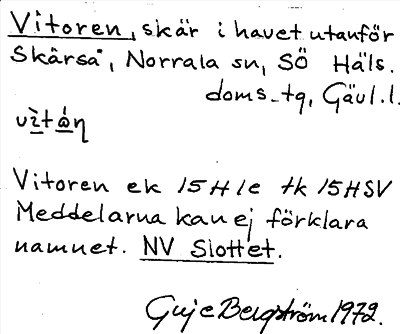 Vitoren, skär i havet utanför
Skärså, Norrala sn, SÖ Häls.
doms.-tg, Gävl. l.
Vitoren ek 15H1e tk 15HSV
Meddelarna kan ej förklara
namnet. NV Slottet.
Guje Bergström 1972.